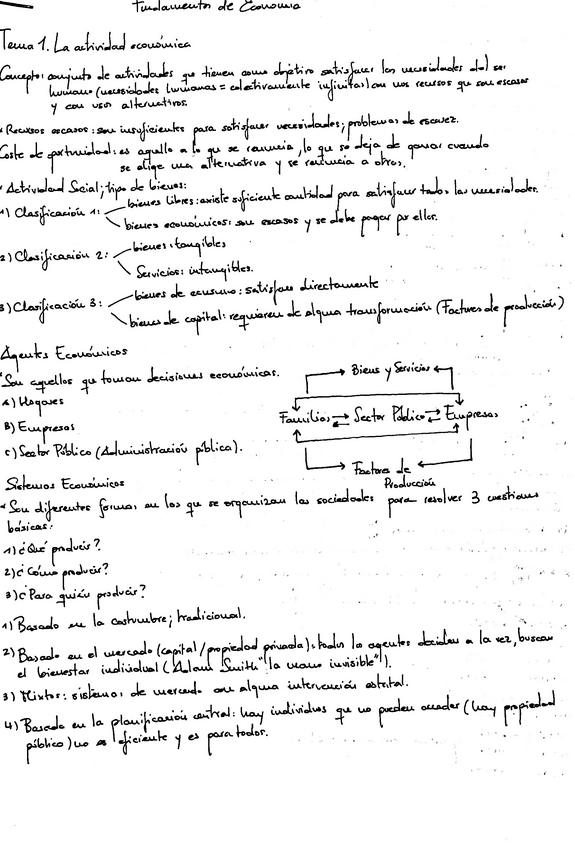 Fundamentos de Economía
Tema 1. La actividad económica
Concepto: conjunto de actividades que tienen como objetivo satisfacer las necesidades del ser
humano (necesidades humanas = colectivamente infinitas) con unos recursos que son escasos
y con usos alternativos.
Recursos escasos: son insuficientes para satisfacer necesidades; problemas de escasez.
Coste de oportunidad: es aquello a lo que se renuncia, lo que se deja de ganar cuando
se elige una alternativa y se renuncia a otros.
Actividad Social; tipo de bienes:
1) Clasificación 1: bienes libres: existe suficiente cantidad para satisfacer todas las necesidades.
bienes económicos: son escasos y se debe pagar por ellos.
2) Clasificación 2: bienes: tangibles
Servicios: intangibles.
3) Clasificación 3: bienes de consumo: satisfacen directamente
bienes de capital: requieren de alguna transformación (Factores de producción)
Agentes Económicos
Son aquellos que toman decisiones económicas.
A) Hogares
B) Empresas
C) Sector Público (Administración pública).
Bienes y Servicios
Familias Sector Público Empresas
Factores de
Producción
Sistemas Económicos
Son diferentes formas en los que se organizan las sociedades para resolver 3 cuestiones
básicas:
1) ¿Qué producir?
2) ¿Cómo producir?
3) ¿Para quién producir?
1) Basado en la costumbre; tradicional.
2) Basado en el mercado (capital/propiedad privada): todos los agentes deciden a la vez, buscan
el bienestar individual (Adam Smith "la mano invisible").
3) Mixtos: sistemas de mercado con alguna intervención estatal.
4) Basado en la planificación central: hay individuos que no pueden acceder (hay propiedad
público) no es eficiente y es para todos.